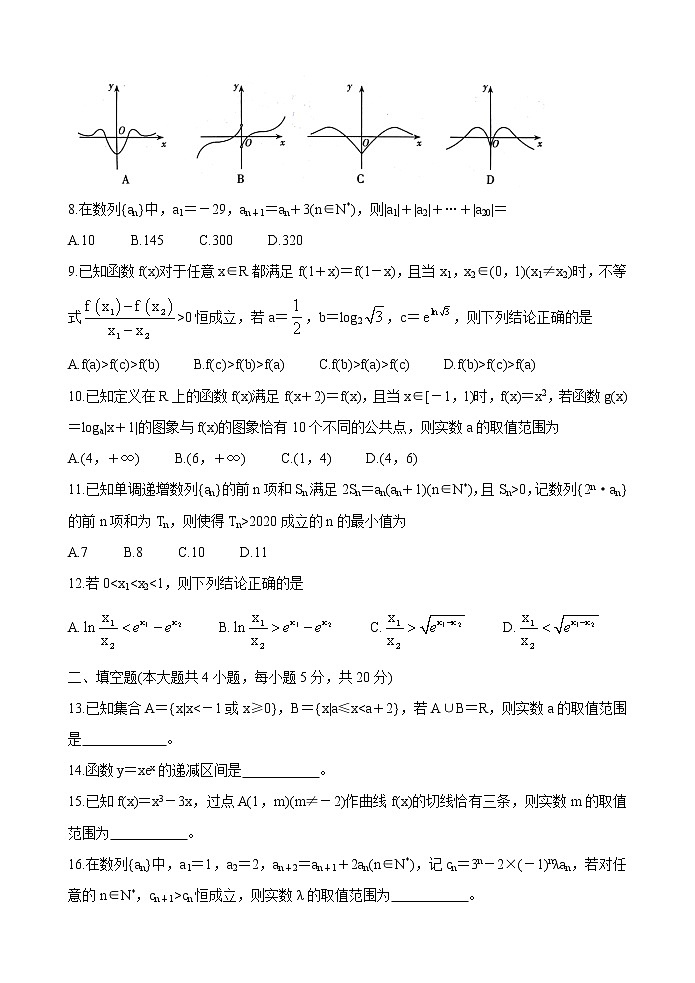 y y y y
O x O x O x O x
A B C D
8.在数列{aₙ}中，a₁＝－29，aₙ₊₁＝aₙ＋3(n∈N*)，则|a₁|＋|a₂|＋…＋|a₂₀|＝
A.10 B.145 C.300 D.320
9.已知函数 f(x)对于任意 x∈R 都满足 f(1＋x)＝f(1－x)，且当 x₁，x₂∈(0，1)(x₁≠x₂)时，不等
式 (f(x₁)－f(x₂))/(x₁－x₂) >0 恒成立，若 a＝1/2，b＝log₂√3，c＝e^(ln√3)，则下列结论正确的是
A.f(a)>f(c)>f(b) B.f(c)>f(b)>f(a) C.f(b)>f(a)>f(c) D.f(b)>f(c)>f(a)
10.已知定义在 R 上的函数 f(x)满足 f(x＋2)＝f(x)，且当 x∈[－1，1)时，f(x)＝x²，若函数 g(x)
＝logₐ|x＋1|的图象与 f(x)的图象恰有 10 个不同的公共点，则实数 a 的取值范围为
A.(4，＋∞) B.(6，＋∞) C.(1，4) D.(4，6)
11.已知单调递增数列{aₙ}的前 n 项和 Sₙ满足 2Sₙ＝aₙ(aₙ＋1)(n∈N*)，且 Sₙ>0，记数列{2ⁿ·aₙ}
的前 n 项和为 Tₙ，则使得 Tₙ>2020 成立的 n 的最小值为
A.7 B.8 C.10 D.11
12.若 0<x₁<x₂<1，则下列结论正确的是
A. ln(x₁/x₂)<e^(x₁)－e^(x₂) B. ln(x₁/x₂)>e^(x₁)－e^(x₂) C. x₁/x₂>√(e^(x₁－x₂)) D. x₁/x₂<√(e^(x₁－x₂))
二、填空题(本大题共 4 小题，每小题 5 分，共 20 分)
13.已知集合 A＝{x|x<－1 或 x≥0}，B＝{x|a≤x<a＋2}，若 A∪B＝R，则实数 a 的取值范围
是 。
14.函数 y＝xeˣ的递减区间是 。
15.已知 f(x)＝x³－3x，过点 A(1，m)(m≠－2)作曲线 f(x)的切线恰有三条，则实数 m 的取值
范围为 。
16.在数列{aₙ}中，a₁＝1，a₂＝2，aₙ₊₂＝aₙ₊₁＋2aₙ(n∈N*)，记 cₙ＝3ⁿ－2×(－1)ⁿλaₙ，若对任
意的 n∈N*，cₙ₊₁>cₙ恒成立，则实数 λ 的取值范围为 。